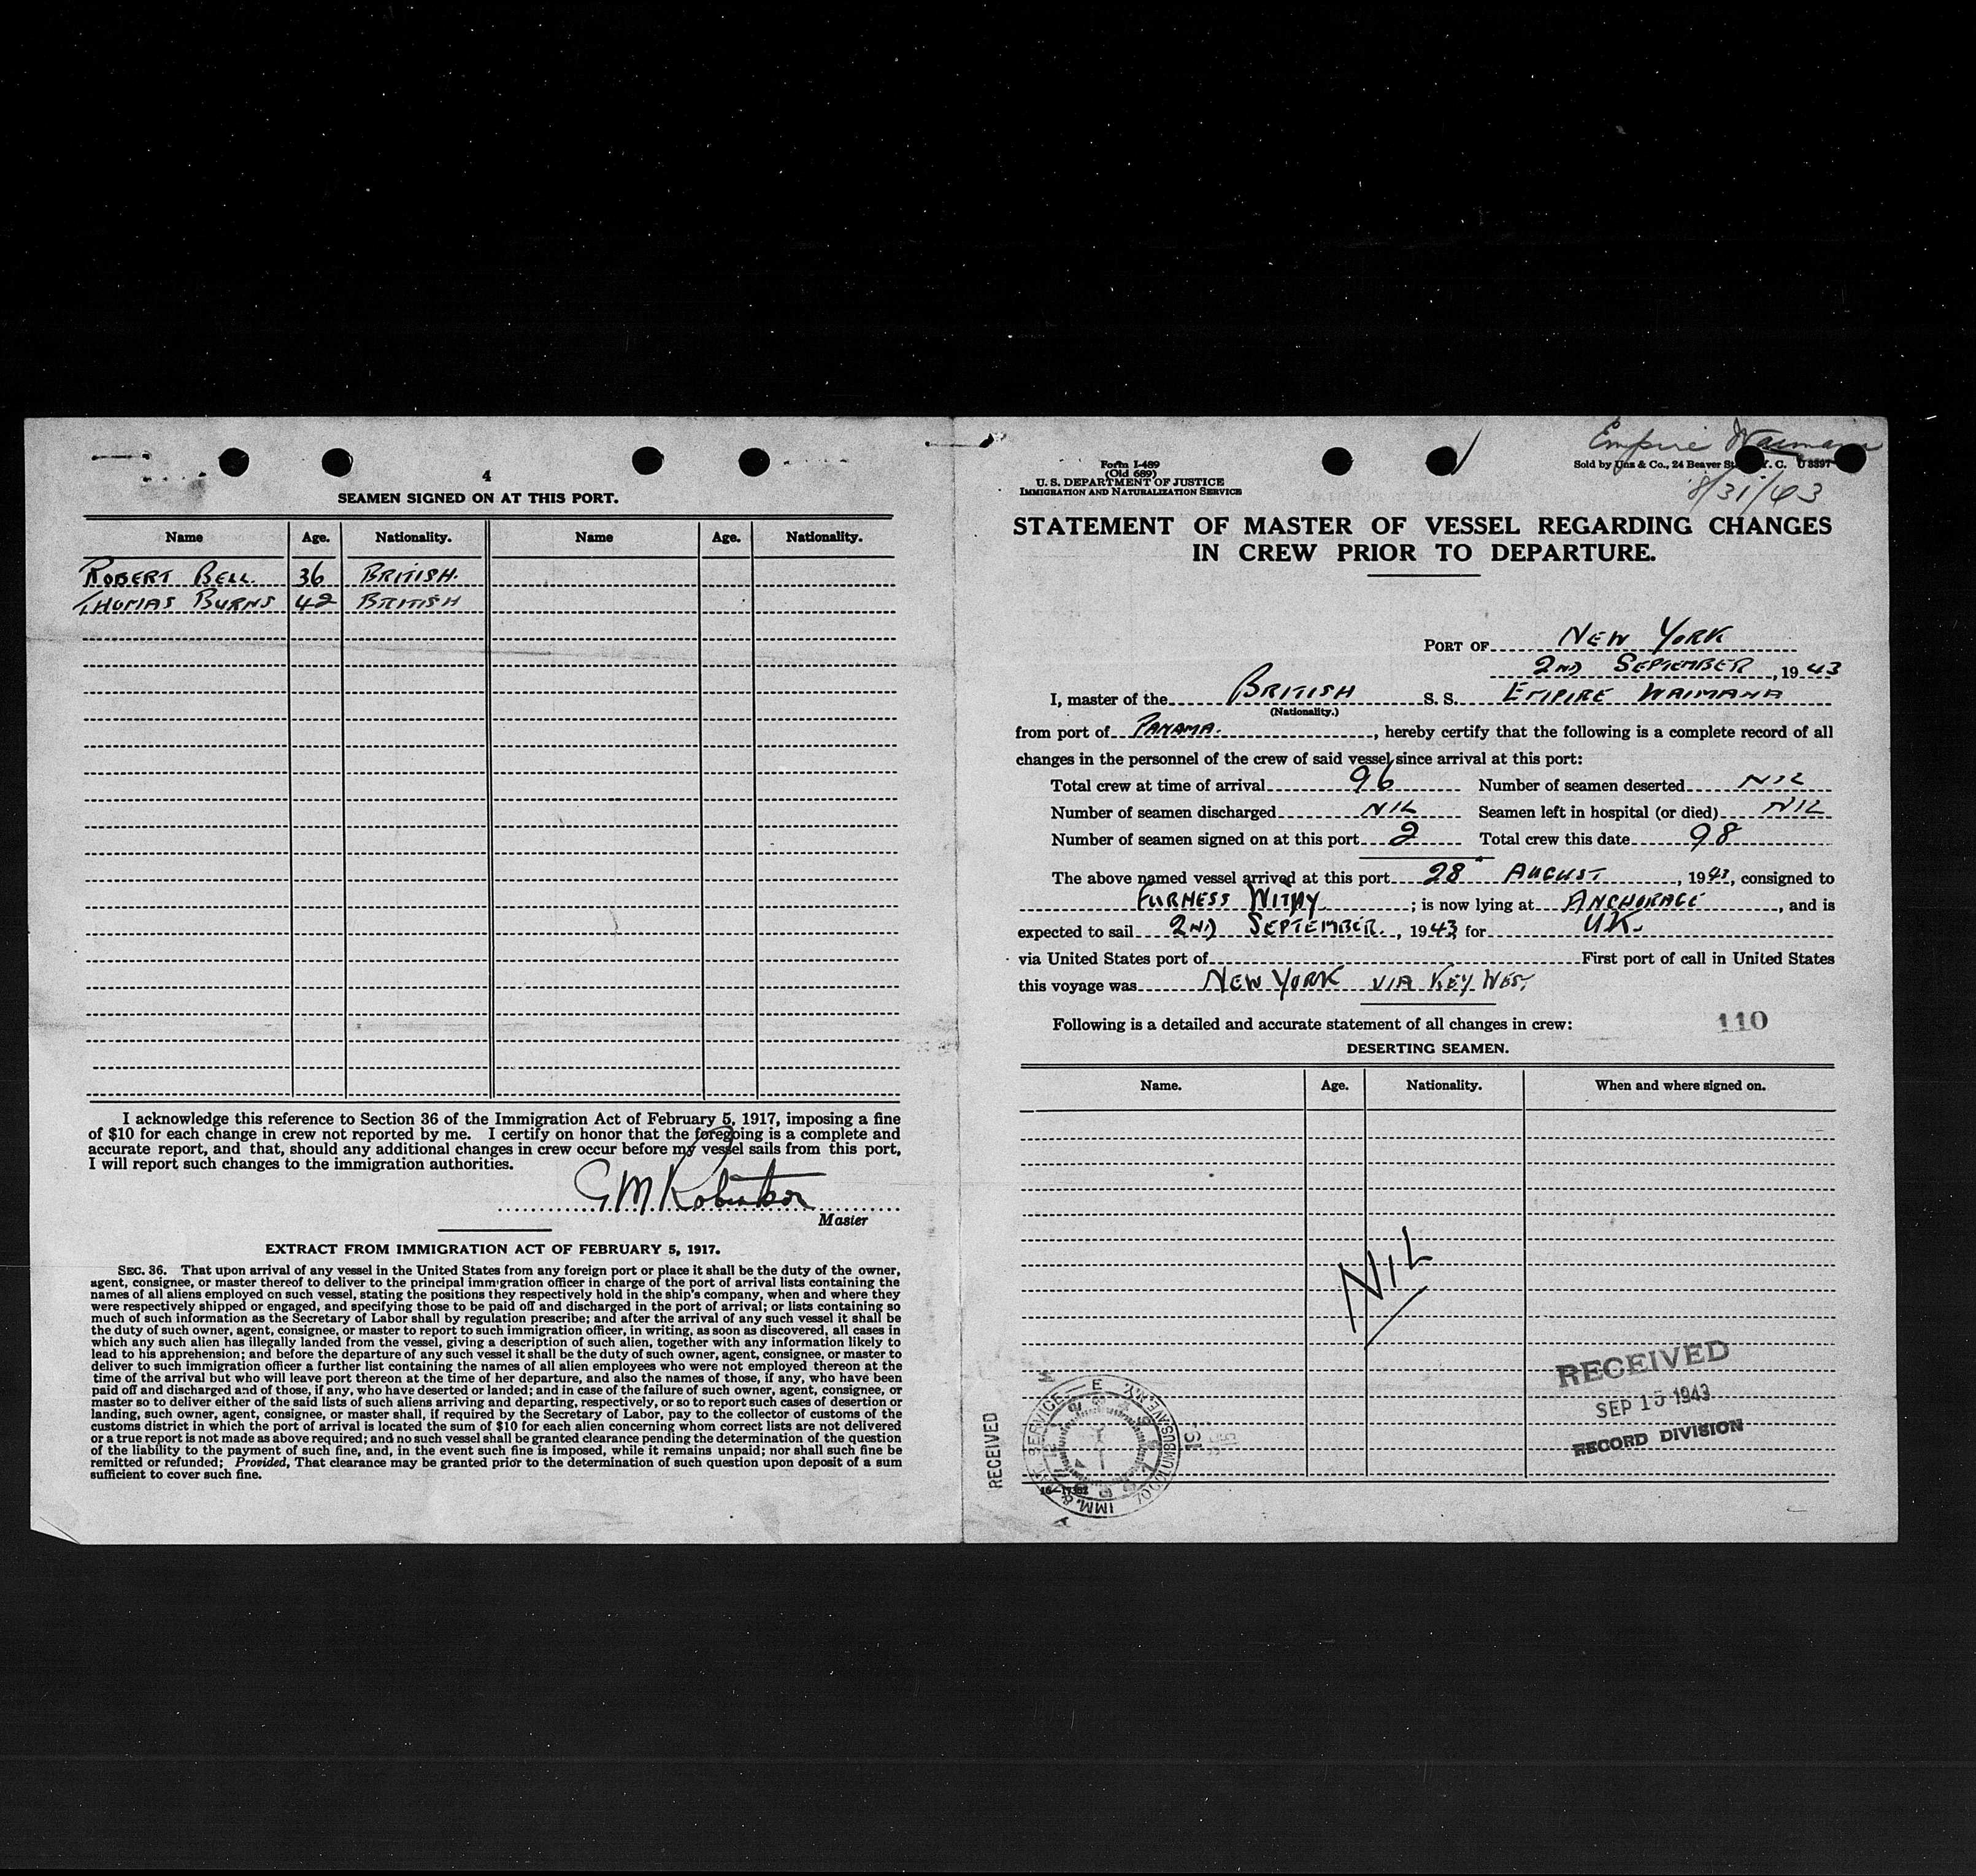 4
SEAMEN SIGNED ON AT THIS PORT.
Name Age. Nationality. Name Age. Nationality.
ROBERT BELL. 36 BRITISH.
THOMAS BURNS 42 BRITISH
I acknowledge this reference to Section 36 of the Immigration Act of February 5, 1917, imposing a fine
of $10 for each change in crew not reported by me. I certify on honor that the foregoing is a complete and
accurate report, and that, should any additional changes in crew occur before my vessel sails from this port,
I will report such changes to the immigration authorities.
G M Robertson
Master
EXTRACT FROM IMMIGRATION ACT OF FEBRUARY 5, 1917.
SEC. 36. That upon arrival of any vessel in the United States from any foreign port or place it shall be the duty of the owner,
agent, consignee, or master thereof to deliver to the principal immigration officer in charge of the port of arrival lists containing the
names of all aliens employed on such vessel, stating the positions they respectively hold in the ship's company, when and where they
were respectively shipped or engaged, and specifying those to be paid off and discharged in the port of arrival; or lists containing so
much of such information as the Secretary of Labor shall by regulation prescribe; and after the arrival of any such vessel it shall be
the duty of such owner, agent, consignee, or master to report to such immigration officer, in writing, as soon as discovered, all cases in
which any such alien has illegally landed from the vessel, giving a description of such alien, together with any information likely to
lead to his apprehension; and before the departure of any such vessel it shall be the duty of such owner, agent, consignee, or master to
deliver to such immigration officer a further list containing the names of all alien employees who were not employed thereon at the
time of the arrival but who will leave port thereon at the time of her departure, and also the names of those, if any, who have been
paid off and discharged and of those, if any, who have deserted or landed; and in case of the failure of such owner, agent, consignee, or
master so to deliver either of the said lists of such aliens arriving and departing, respectively, or so to report such cases of desertion or
landing, such owner, agent, consignee, or master shall, if required by the Secretary of Labor, pay to the collector of customs of the
customs district in which the port of arrival is located the sum of $10 for each alien concerning whom correct lists are not delivered
or a true report is not made as above required; and no such vessel shall be granted clearance pending the determination of the question
of the liability to the payment of such fine, and, in the event such fine is imposed, while it remains unpaid; nor shall such fine be
remitted or refunded; Provided, That clearance may be granted prior to the determination of such question upon deposit of a sum
sufficient to cover such fine.
Empire Waimana
Form I-489
(Old 689)
U. S. DEPARTMENT OF JUSTICE
IMMIGRATION AND NATURALIZATION SERVICE
Sold by Unz & Co., 24 Beaver St. Y. C. U 8397
8/31/43
STATEMENT OF MASTER OF VESSEL REGARDING CHANGES
IN CREW PRIOR TO DEPARTURE.
PORT OF NEW YORK
2ND SEPTEMBER, 1943
I, master of the BRITISH S. S. EMPIRE WAIMANA
(Nationality.)
from port of PANAMA., hereby certify that the following is a complete record of all
changes in the personnel of the crew of said vessel since arrival at this port:
Total crew at time of arrival 96 Number of seamen deserted NIL
Number of seamen discharged NIL Seamen left in hospital (or died) NIL
Number of seamen signed on at this port 2 Total crew this date 98
The above named vessel arrived at this port 28 AUGUST, 1943, consigned to
FURNESS WITHY; is now lying at ANCHORAGE, and is
expected to sail 2ND SEPTEMBER., 1943, for U.K.
via United States port of First port of call in United States
this voyage was NEW YORK VIA KEY WEST
Following is a detailed and accurate statement of all changes in crew: 110
DESERTING SEAMEN.
Name. Age. Nationality. When and where signed on.
NIL
RECEIVED
SEP 15 1943
RECORD DIVISION
RECEIVED
IMM. & SERVICE 70 COLUMBUS AVE. N.Y.
16-17382